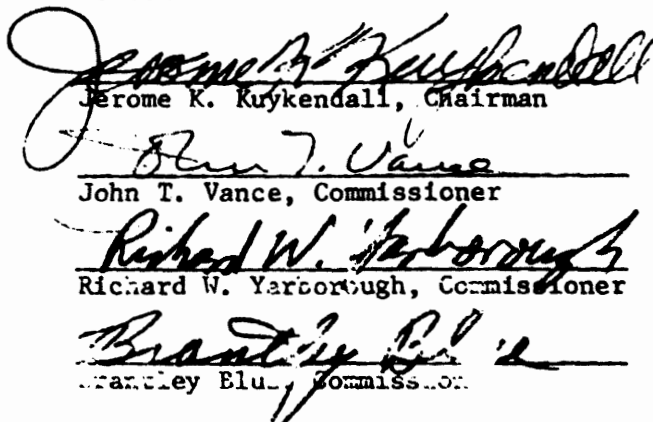 Jerome K. Kuykendall
Jerome K. Kuykendall, Chairman
John T. Vance
John T. Vance, Commissioner
Richard W. Yarborough
Richard W. Yarborough, Commissioner
Brantley Blue
Brantley Blue, Commissioner